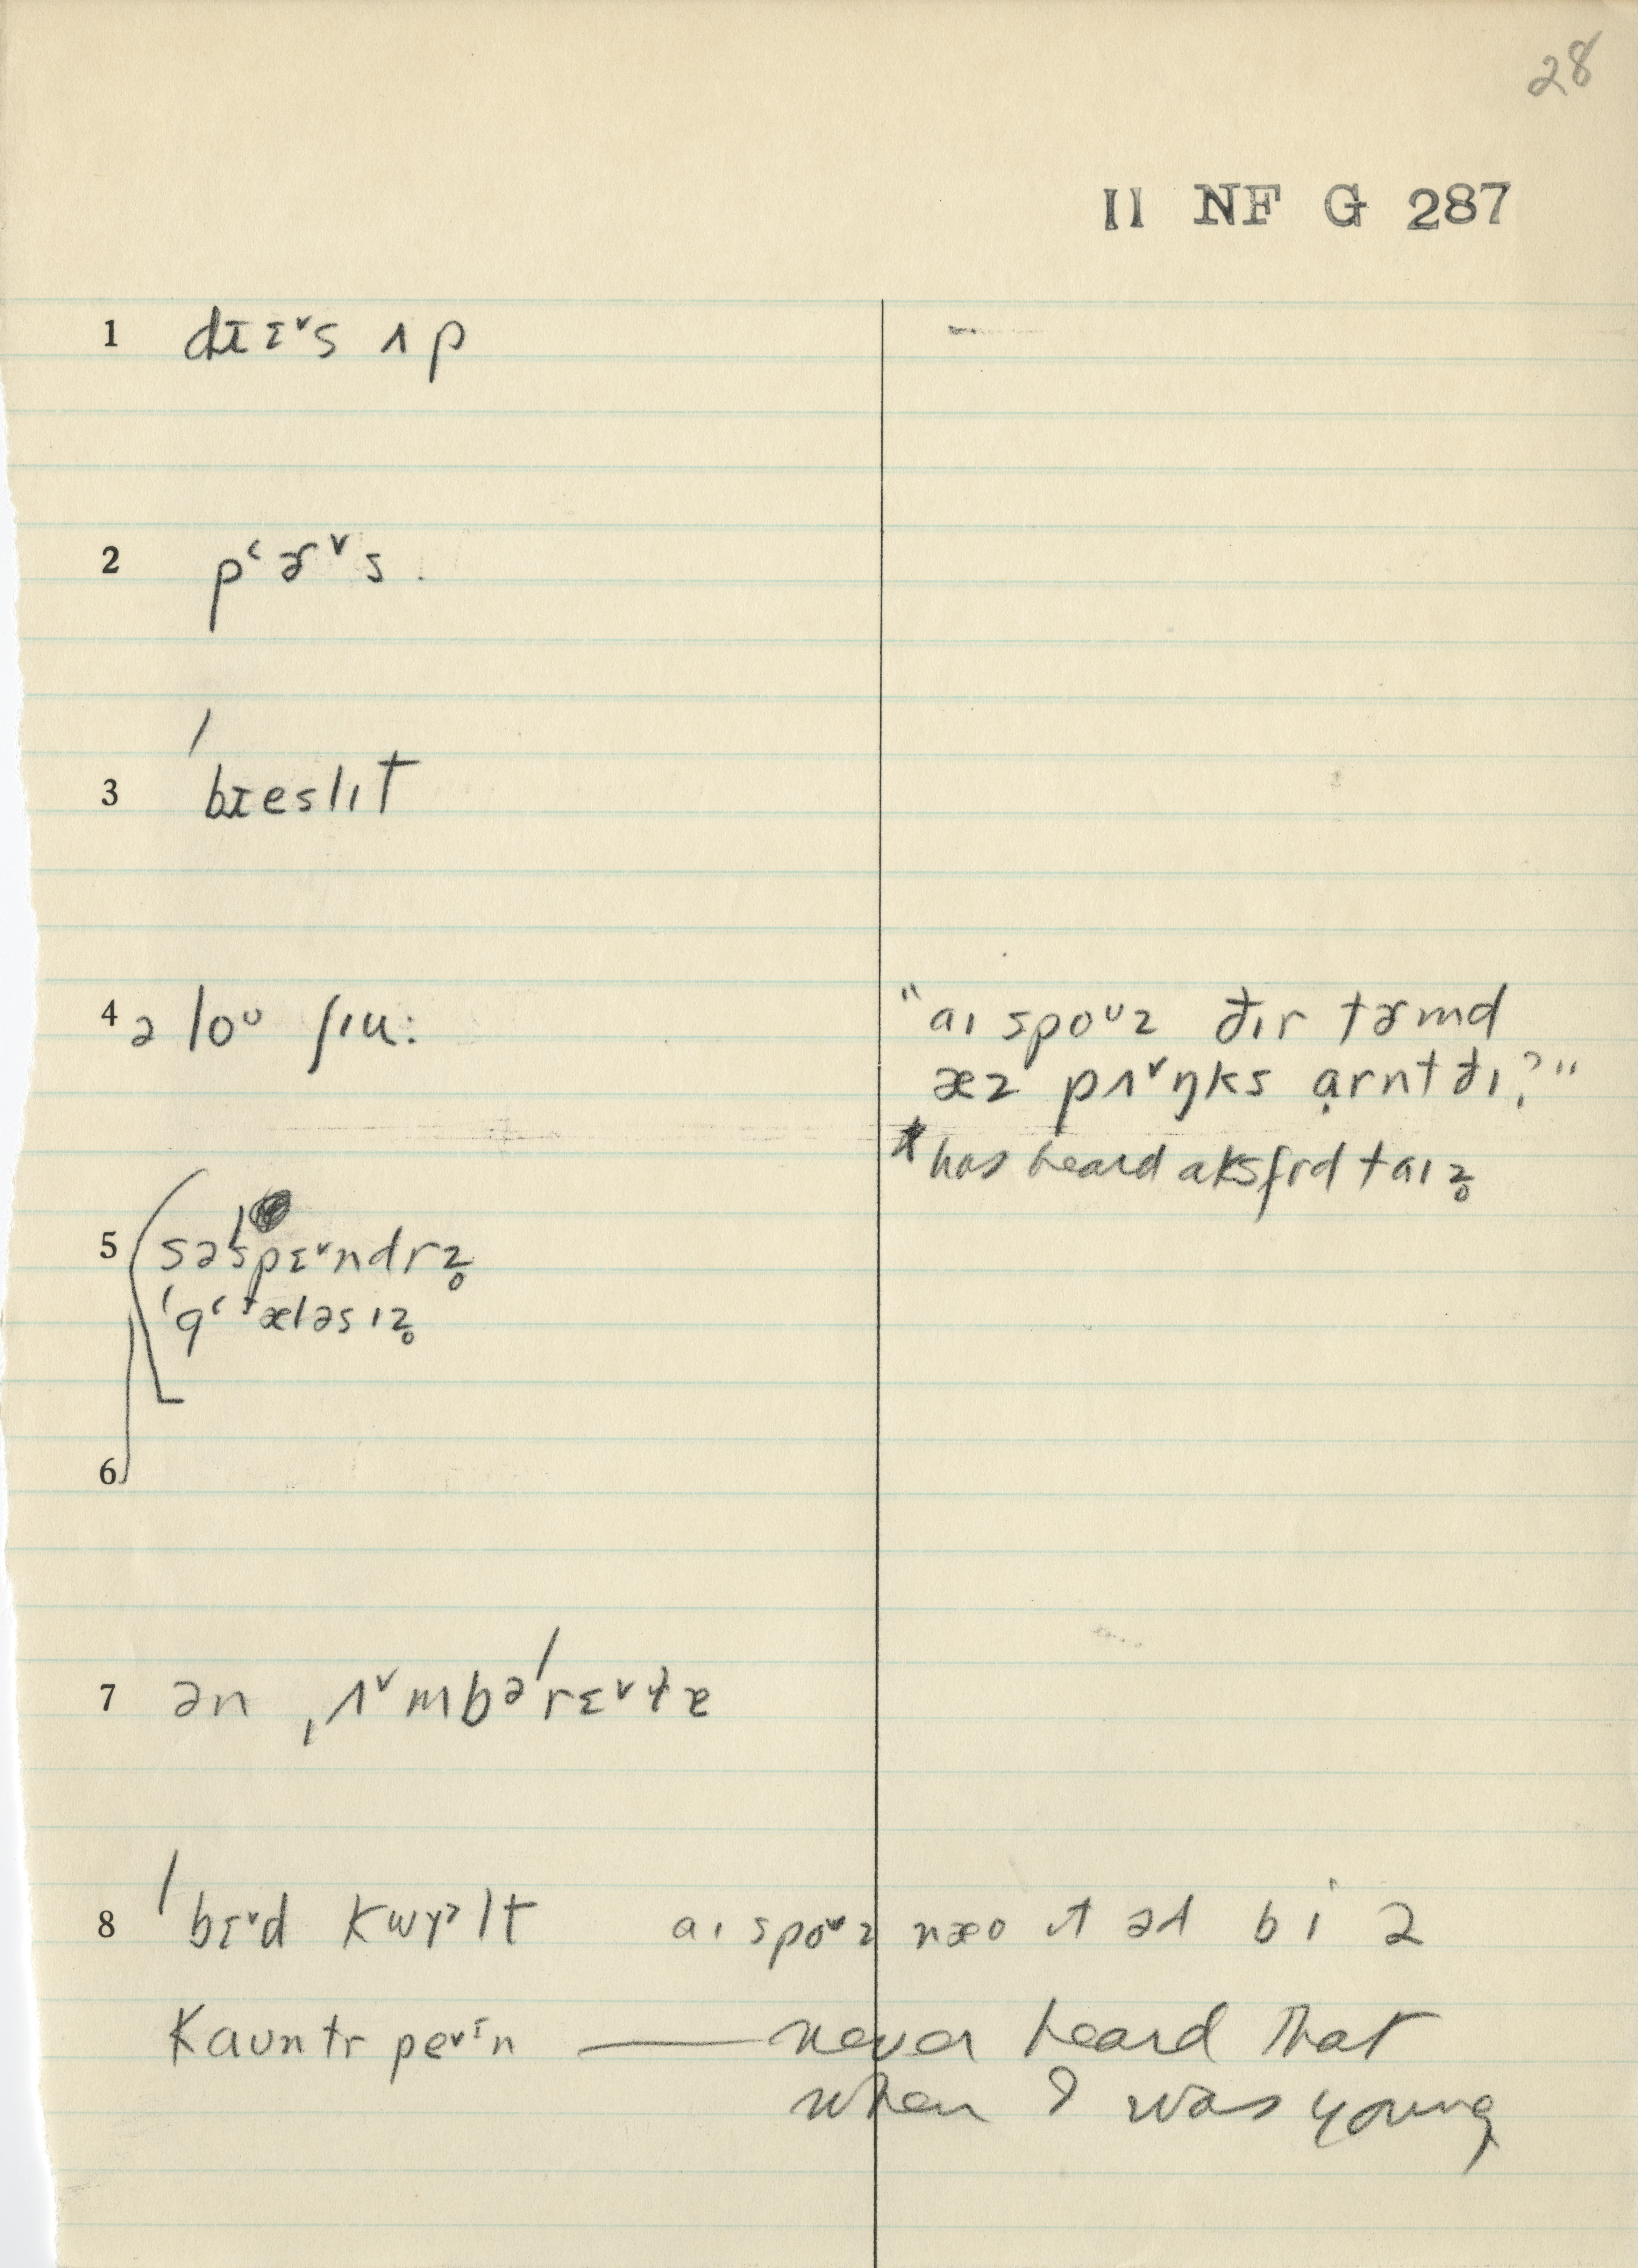 28
II NF G 287
1 dɪɛᵛs ʌp
2 pʻɚᵛs.
3 ˈbɪeslɪt
4 ə loᵁ ʃɪu:
"aɪ spoᵁz ðɪr tɚmd
æz pʌᵛŋks ạrnt ðɪ?"
*has heard aksfrd taɪz̥
5 səˈspɛᵛndrz̥
ˈgʻæləsɪz̥
6
7 ən ˌʌᵛmbəˈrɛᵛɫɐ
8 ˈbɛᵛd kwɤᵊlt aɪ spoᵛz næo ɪt əd bi ə
kauntr peᵛɪn — never heard that
when I was young